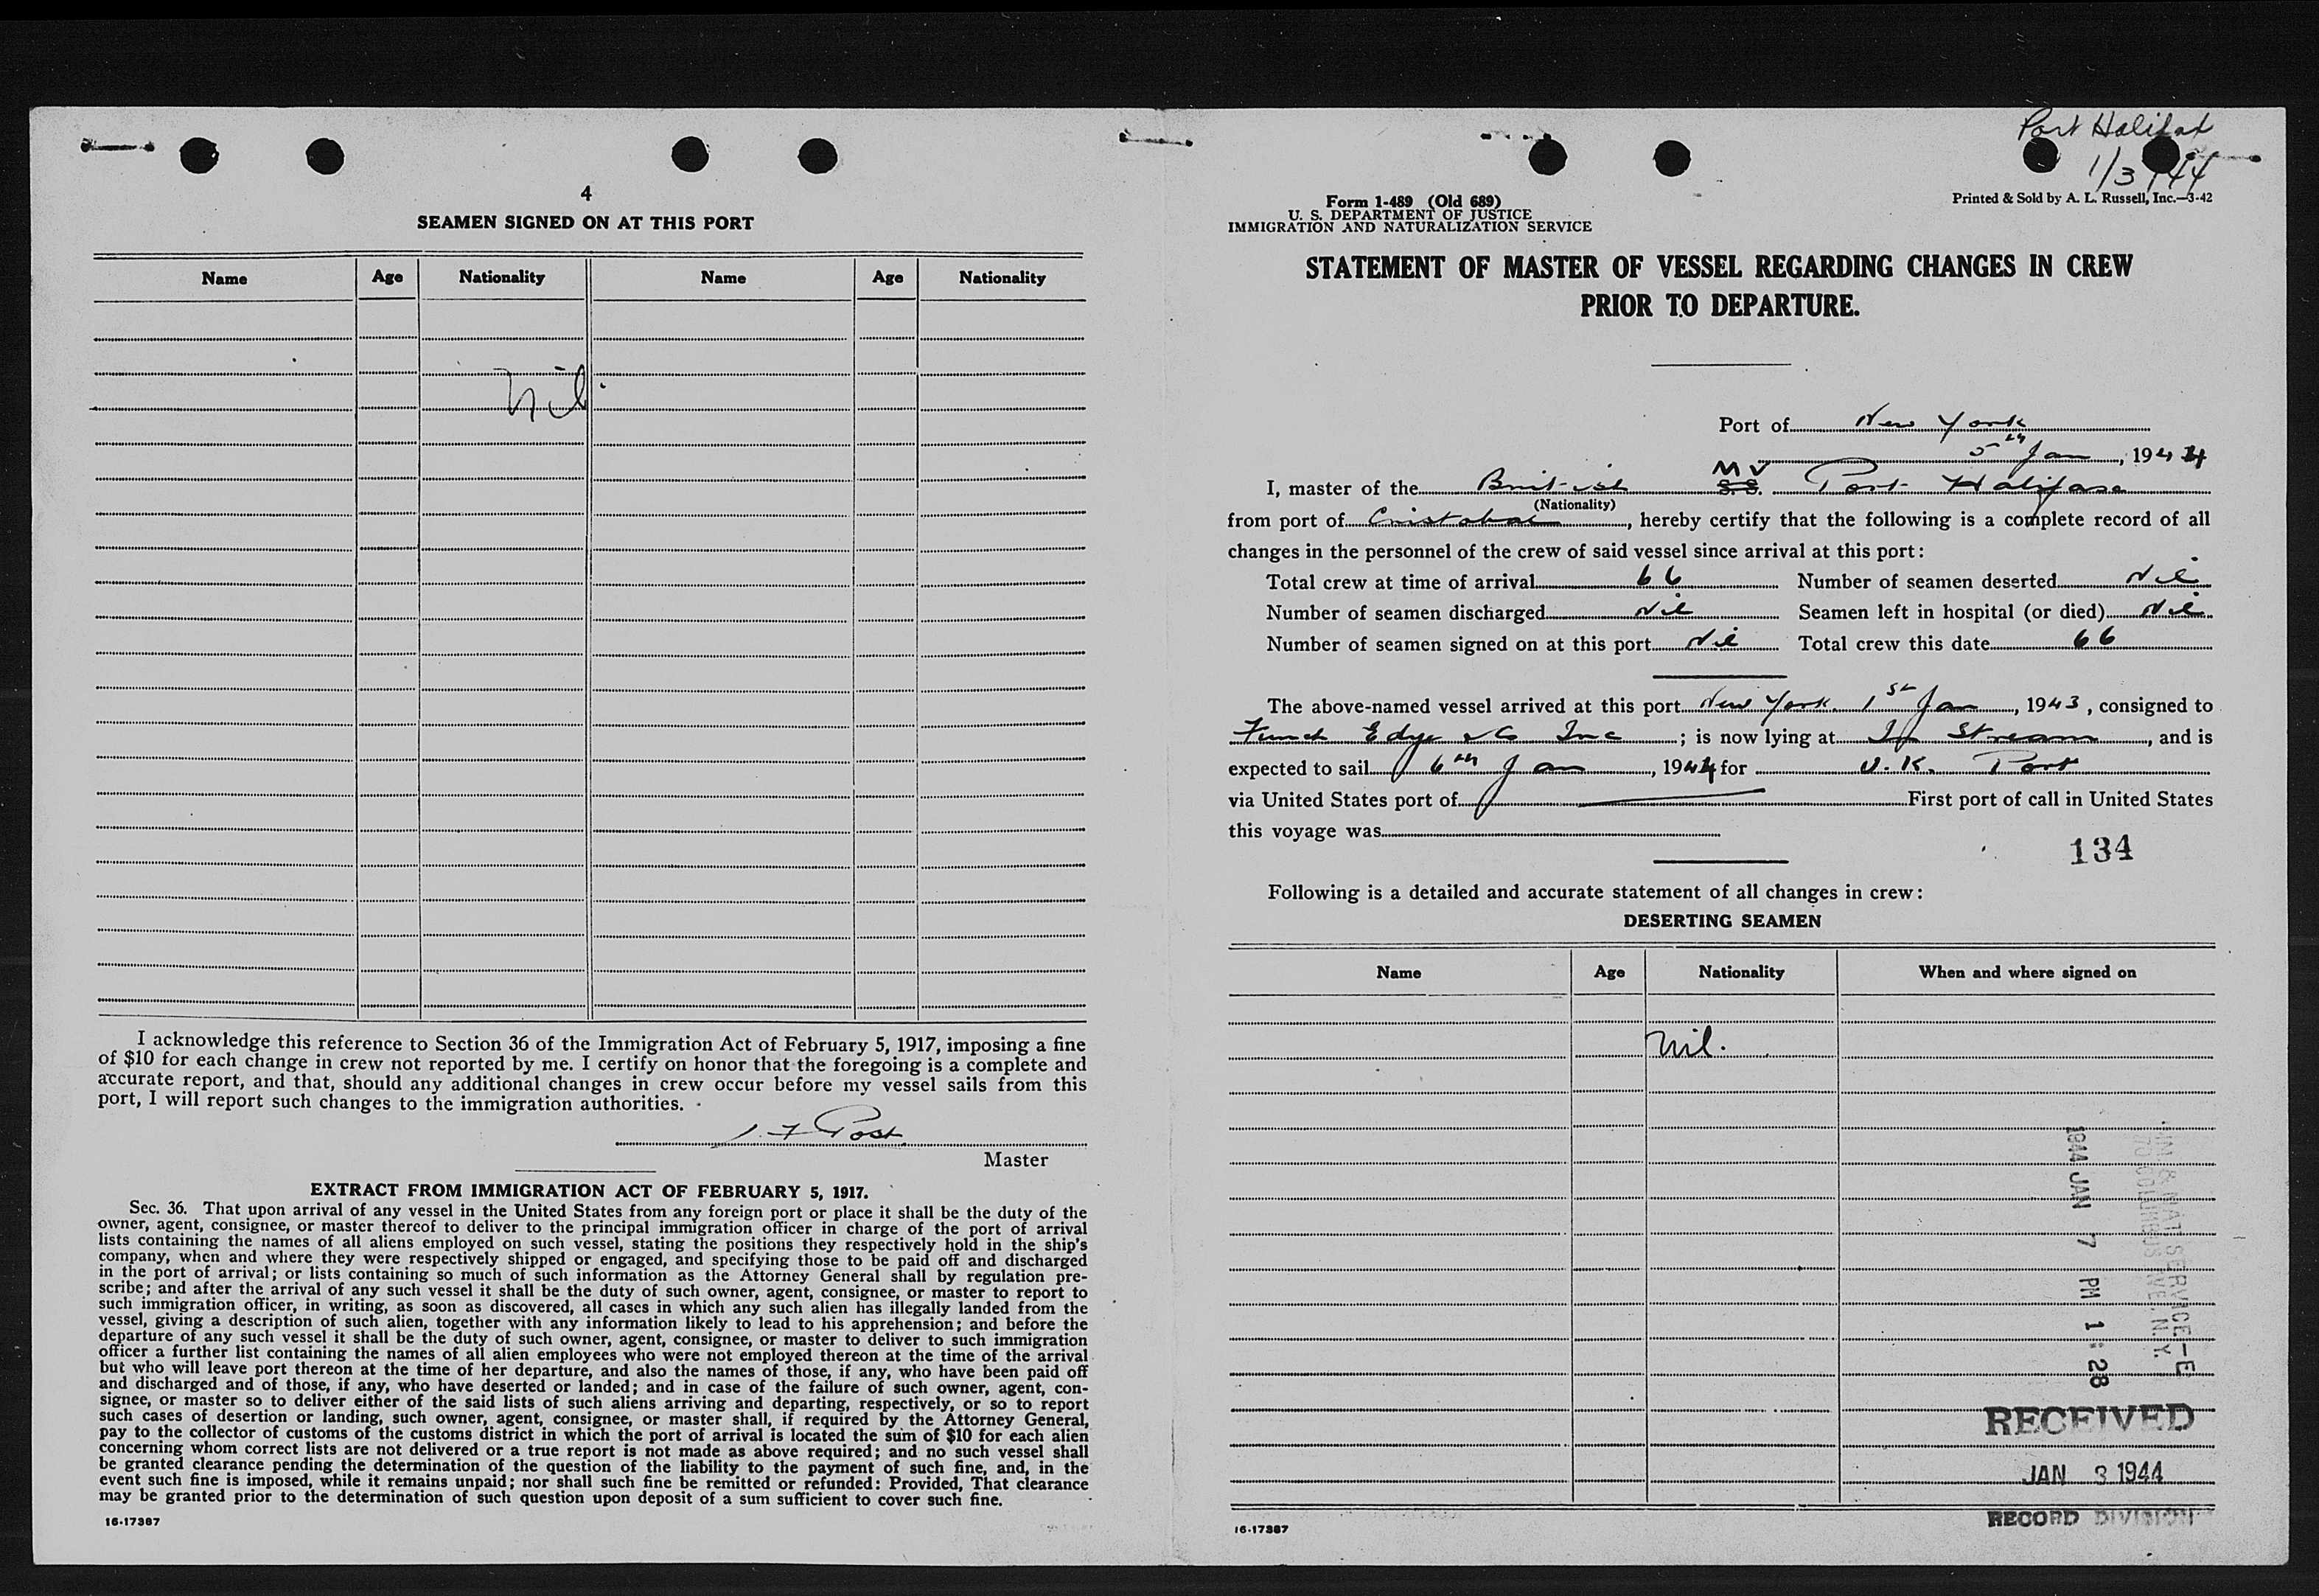 4
SEAMEN SIGNED ON AT THIS PORT
Name Age Nationality Name Age Nationality
Nil
I acknowledge this reference to Section 36 of the Immigration Act of February 5, 1917, imposing a fine
of $10 for each change in crew not reported by me. I certify on honor that the foregoing is a complete and
accurate report, and that, should any additional changes in crew occur before my vessel sails from this
port, I will report such changes to the immigration authorities.
Post
Master
EXTRACT FROM IMMIGRATION ACT OF FEBRUARY 5, 1917.
Sec. 36. That upon arrival of any vessel in the United States from any foreign port or place it shall be the duty of the
owner, agent, consignee, or master thereof to deliver to the principal immigration officer in charge of the port of arrival
lists containing the names of all aliens employed on such vessel, stating the positions they respectively hold in the ship's
company, when and where they were respectively shipped or engaged, and specifying those to be paid off and discharged
in the port of arrival; or lists containing so much of such information as the Attorney General shall by regulation pre-
scribe; and after the arrival of any such vessel it shall be the duty of such owner, agent, consignee, or master to report to
such immigration officer, in writing, as soon as discovered, all cases in which any such alien has illegally landed from the
vessel, giving a description of such alien, together with any information likely to lead to his apprehension; and before the
departure of any such vessel it shall be the duty of such owner, agent, consignee, or master to deliver to such immigration
officer a further list containing the names of all alien employees who were not employed thereon at the time of the arrival
but who will leave port thereon at the time of her departure, and also the names of those, if any, who have been paid off
and discharged and of those, if any, who have deserted or landed; and in case of the failure of such owner, agent, con-
signee, or master so to deliver either of the said lists of such aliens arriving and departing, respectively, or so to report
such cases of desertion or landing, such owner, agent, consignee, or master shall, if required by the Attorney General,
pay to the collector of customs of the customs district in which the port of arrival is located the sum of $10 for each alien
concerning whom correct lists are not delivered or a true report is not made as above required; and no such vessel shall
be granted clearance pending the determination of the question of the liability to the payment of such fine, and, in the
event such fine is imposed, while it remains unpaid; nor shall such fine be remitted or refunded: Provided, That clearance
may be granted prior to the determination of such question upon deposit of a sum sufficient to cover such fine.
16-17387
Port Halifax
1/3/44
Form 1-489 (Old 689)
U. S. DEPARTMENT OF JUSTICE
IMMIGRATION AND NATURALIZATION SERVICE
Printed & Sold by A. L. Russell, Inc.—3-42
STATEMENT OF MASTER OF VESSEL REGARDING CHANGES IN CREW
PRIOR TO DEPARTURE.
Port of New York
5th Jan, 1944
I, master of the British M V S.S. Port Halifax
(Nationality)
from port of Cristobal, hereby certify that the following is a complete record of all
changes in the personnel of the crew of said vessel since arrival at this port:
Total crew at time of arrival 66 Number of seamen deserted Nil
Number of seamen discharged Nil Seamen left in hospital (or died) Nil
Number of seamen signed on at this port Nil Total crew this date 66
The above-named vessel arrived at this port New York. 1st Jan, 1943, consigned to
Funch Edye & Co Inc; is now lying at In Stream, and is
expected to sail 6th Jan, 1944 for U.K. Port
via United States port of First port of call in United States
this voyage was
134
Following is a detailed and accurate statement of all changes in crew:
DESERTING SEAMEN
Name Age Nationality When and where signed on
Nil.
IMM & NAT SERVICE-E
70 COLUMBUS AVE. N.Y.
1944 JAN 7 PM 1:28
RECEIVED
JAN 3 1944
RECORD DIVISION
16-17387